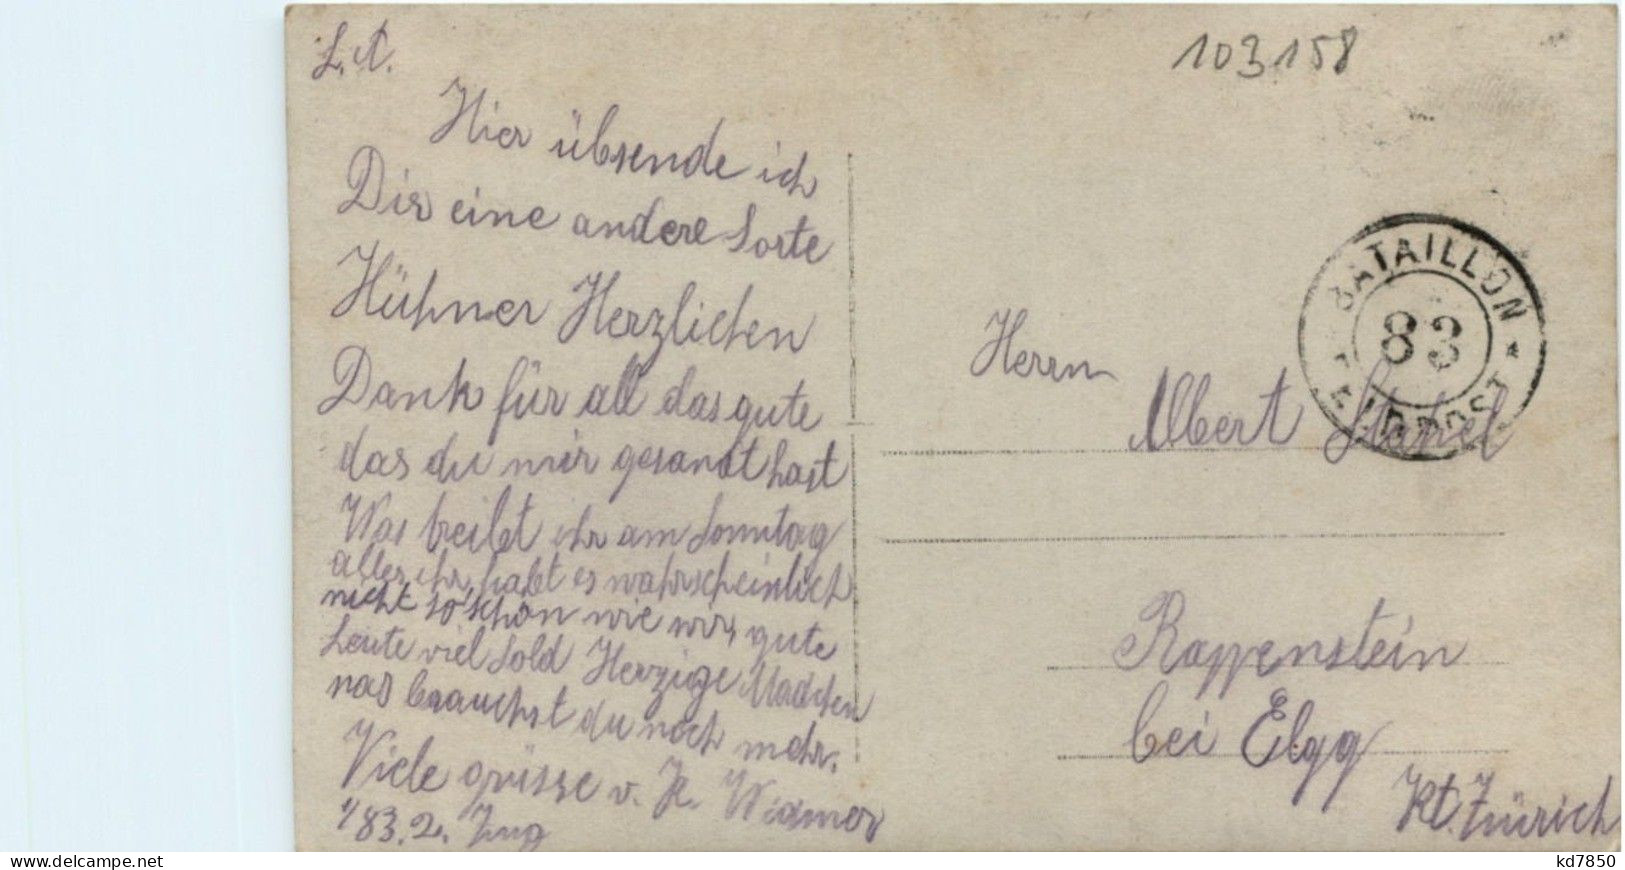 L. A.
Hier übsende ich
Dir eine andere Sorte
Hühner Herzlichen
Dank für all das gute
das du mir gesandt hast
Was treibt ihr am Sonntag
alles ihr, habt es wahrscheinlich
nicht so schön wie wir, gute
Leute viel Sold Herzige Madchen
was brauchst du noch mehr.
Viele grüsse v. K. Widmer
1/83. 2. Zug
103158
BATAILLON
83
FELDPOST
Herrn
Albert Stahel
Rappenstein
bei Elgg
Kt. Zürich
www.delcampe.net
kd7850